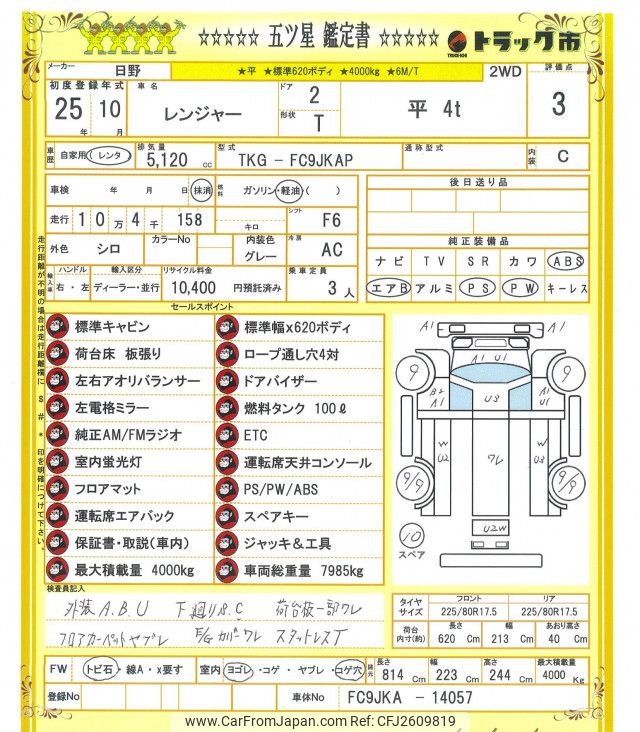 ☆☆☆☆☆ 五ツ星 鑑定書 ☆☆☆☆☆ トラック市
TRUCK-ICHI
メーカー 日野 ★平 ★標準620ボディ ★4000kg ★6M/T 2WD 評価点
3
初度登録年式 25年 10月
車名 レンジャー
ドア 2
形状 T
平 4t
車歴 自家用 レンタ
排気量 5,120 cc
型式 TKG - FC9JKAP
通称型式
内装 C
車検 年 月 日 抹消
燃料 ガソリン・軽油・( )
走行 10万4千158 キロ
シフト F6
外色 シロ カラーNo
内装色 グレー
冷房 AC
輸入車 ハンドル 右・左
輸入区分 ディーラー・並行
リサイクル料金 10,400 円預託済み
乗車定員 3人
後日送り品
純正装備品
ナビ TV SR カワ ABS
エアB アルミ PS PW キーレス
走行距離が不明の場合は走行距離欄に S # * 印を明確につけて下さい。
セールスポイント
標準キャビン 標準幅x620ボディ
荷台床 板張り ロープ通し穴4対
左右アオリバランサー ドアバイザー
左電格ミラー 燃料タンク 100ℓ
純正AM/FMラジオ ETC
室内蛍光灯 運転席天井コンソール
フロアマット PS/PW/ABS
運転席エアバック スペアキー
保証書・取説(車内) ジャッキ&工具
最大積載量 4000kg 車両総重量 7985kg
A1 A1
A1 U1
9 9
B2 A1 U3 A1 U1
W U2 ワレ W U3
9/9 9/9
U2W
10
スペア
検査員記入
外装A.B.U 下廻りB.C 荷台板一部ワレ
フロアカーペットヤブレ F/Gカバワレ スタットレスT
タイヤサイズ フロント 225/80R17.5 リア 225/80R17.5
荷台内寸(約) 長さ 620 Cm 幅 213 Cm あおり高さ 40 Cm
FW トビ石・線A・x要す 室内 ヨゴレ・コゲ・ヤブレ・コゲ穴
諸元 長さ 814 Cm 幅 223 Cm 高さ 244 Cm 最大積載量 4000 Kg
登録No
車体No FC9JKA - 14057
www.CarFromJapan.com Ref: CFJ2609819